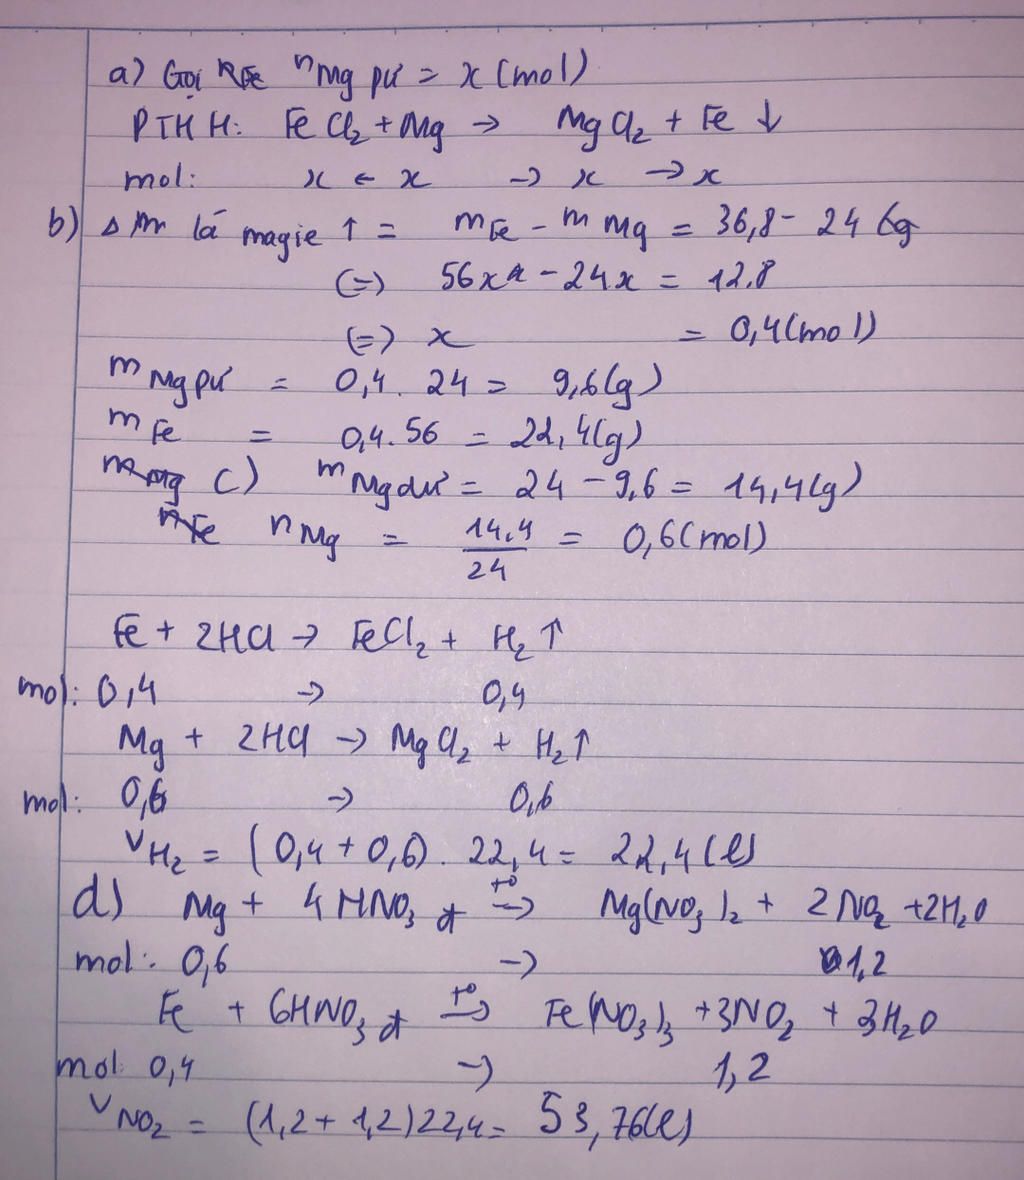 a) Gọi nFe nMg pư = x (mol)
PTHH: FeCl₂ + Mg → MgCl₂ + Fe ↓
mol: x ← x → x → x
b) Δm lá magie ↑ = mFe - mMg = 36,8 - 24 (g
(=) 56x - 24x = 12,8
(=) x = 0,4 (mol)
mMg pư = 0,4 . 24 = 9,6 (g)
mFe = 0,4 . 56 = 22,4 (g)
mMg c) mMg dư = 24 - 9,6 = 14,4 (g)
nFe nMg = 14,4/24 = 0,6 (mol)
Fe + 2HCl → FeCl₂ + H₂ ↑
mol: 0,4 → 0,4
Mg + 2HCl → MgCl₂ + H₂ ↑
mol: 0,6 → 0,6
VH₂ = (0,4 + 0,6) . 22,4 = 22,4 (l)
d) Mg + 4HNO₃ đ t⁰→ Mg(NO₃)₂ + 2NO₂ + 2H₂O
mol: 0,6 → 1,2
Fe + 6HNO₃ đ t⁰→ Fe(NO₃)₃ + 3NO₂ + 3H₂O
mol: 0,4 → 1,2
VNO₂ = (1,2 + 1,2) 22,4 = 53,76 (l)